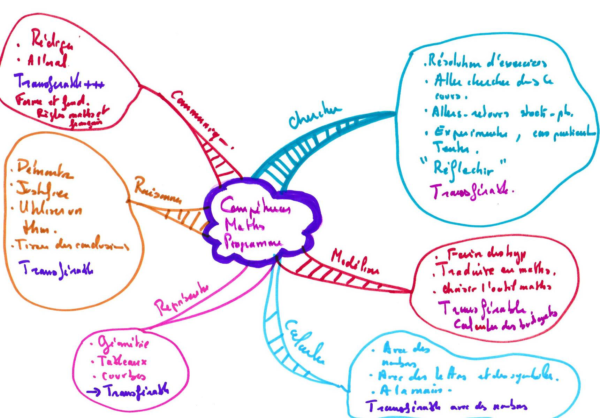 Compétences
Maths
Programme
Communiquer.
• Rédiger
• A l'oral
Transférable +++
Forme et fond.
Règles maths et
français
Chercher
• Résolution d'exercices
• Aller chercher dans le
cours.
• Allers-retours
• Expérimenter, cas particuliers
Tester.
"Réfléchir"
Transférable.
Raisonner
• Démontrer
• Justifier
• Utiliser un
thm.
• Tirer des conclusions
Transférable
Modéliser
• Traduire en maths.
• choisir l'outil maths
Transférable.
Calculer des budgets
Représenter
• Géométrie
• Tableaux
• courbes
→ Transférable
Calculer
• Avec des
nombres
• Avec des lettres et des symboles.
• A la main.
Transférable avec des nombres